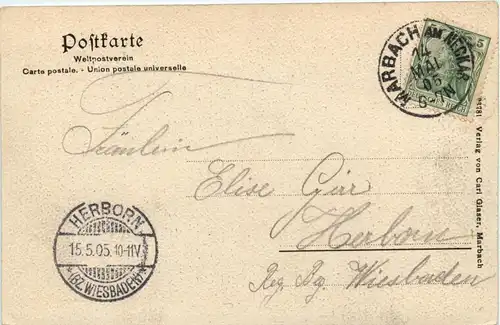 Postkarte
Weltpostverein
Carte postale. - Union postale universelle
MARBACH AM NECKAR
14
MAI
05
5
Fräulein
Elise
Herborn
Reg. Bg. Wiesbaden
HERBORN
15.5.05.10-11V.
*(BZ.WIESBADEN)*
Verlag von Carl Glaser, Marbach